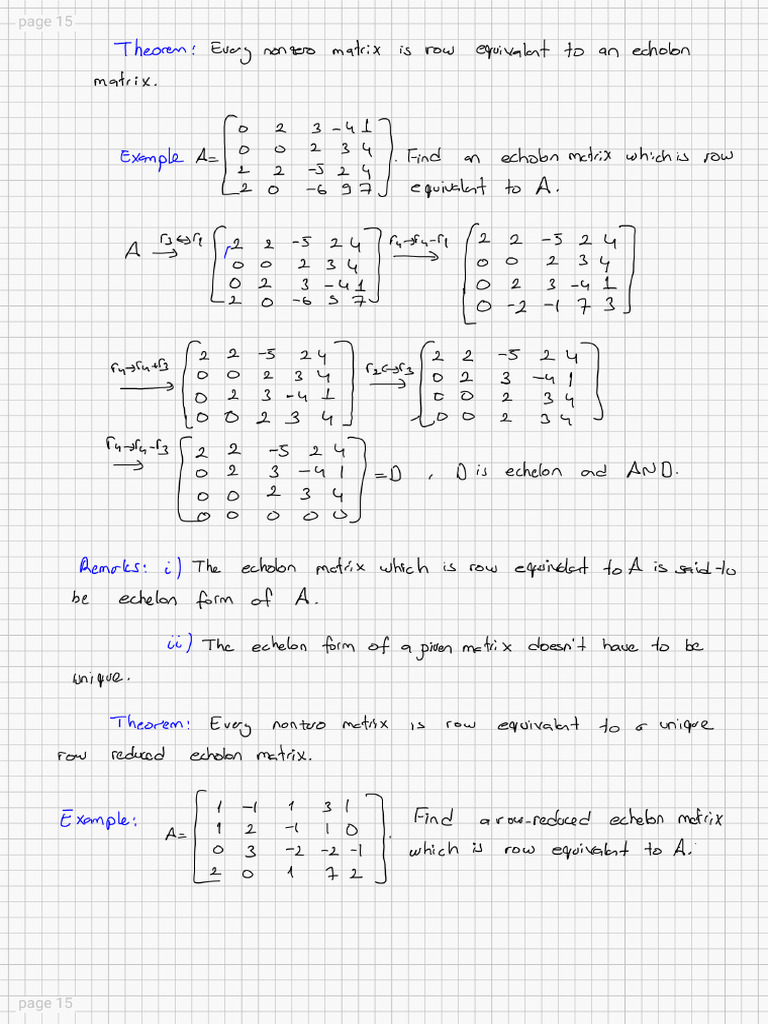 page 15
Theorem: Every nonzero matrix is row equivalent to an echelon
matrix.
Example A= [0 2 3 -4 1
0 0 2 3 4
2 2 -5 2 4
2 0 -6 9 7] . Find an echelon matrix which is row
equivalent to A.
A r3↔r1 → [2 2 -5 2 4
0 0 2 3 4
0 2 3 -4 1
2 0 -6 9 7] r4→r4-r1 → [2 2 -5 2 4
0 0 2 3 4
0 2 3 -4 1
0 -2 -1 7 3]
r4→r4+r3 → [2 2 -5 2 4
0 0 2 3 4
0 2 3 -4 1
0 0 2 3 4] r2↔r3 → [2 2 -5 2 4
0 2 3 -4 1
0 0 2 3 4
0 0 2 3 4]
r4→r4-r3 → [2 2 -5 2 4
0 2 3 -4 1
0 0 2 3 4
0 0 0 0 0] = D , D is echelon and A~D.
Remarks: i) The echelon matrix which is row equivalent to A is said to
be echelon form of A.
ii) The echelon form of a given matrix doesn't have to be
unique.
Theorem: Every nonzero matrix is row equivalent to a unique
row reduced echelon matrix.
Example: A= [1 -1 1 3 1
1 2 -1 1 0
0 3 -2 -2 -1
2 0 1 7 2] . Find a row-reduced echelon matrix
which is row equivalent to A.
page 15